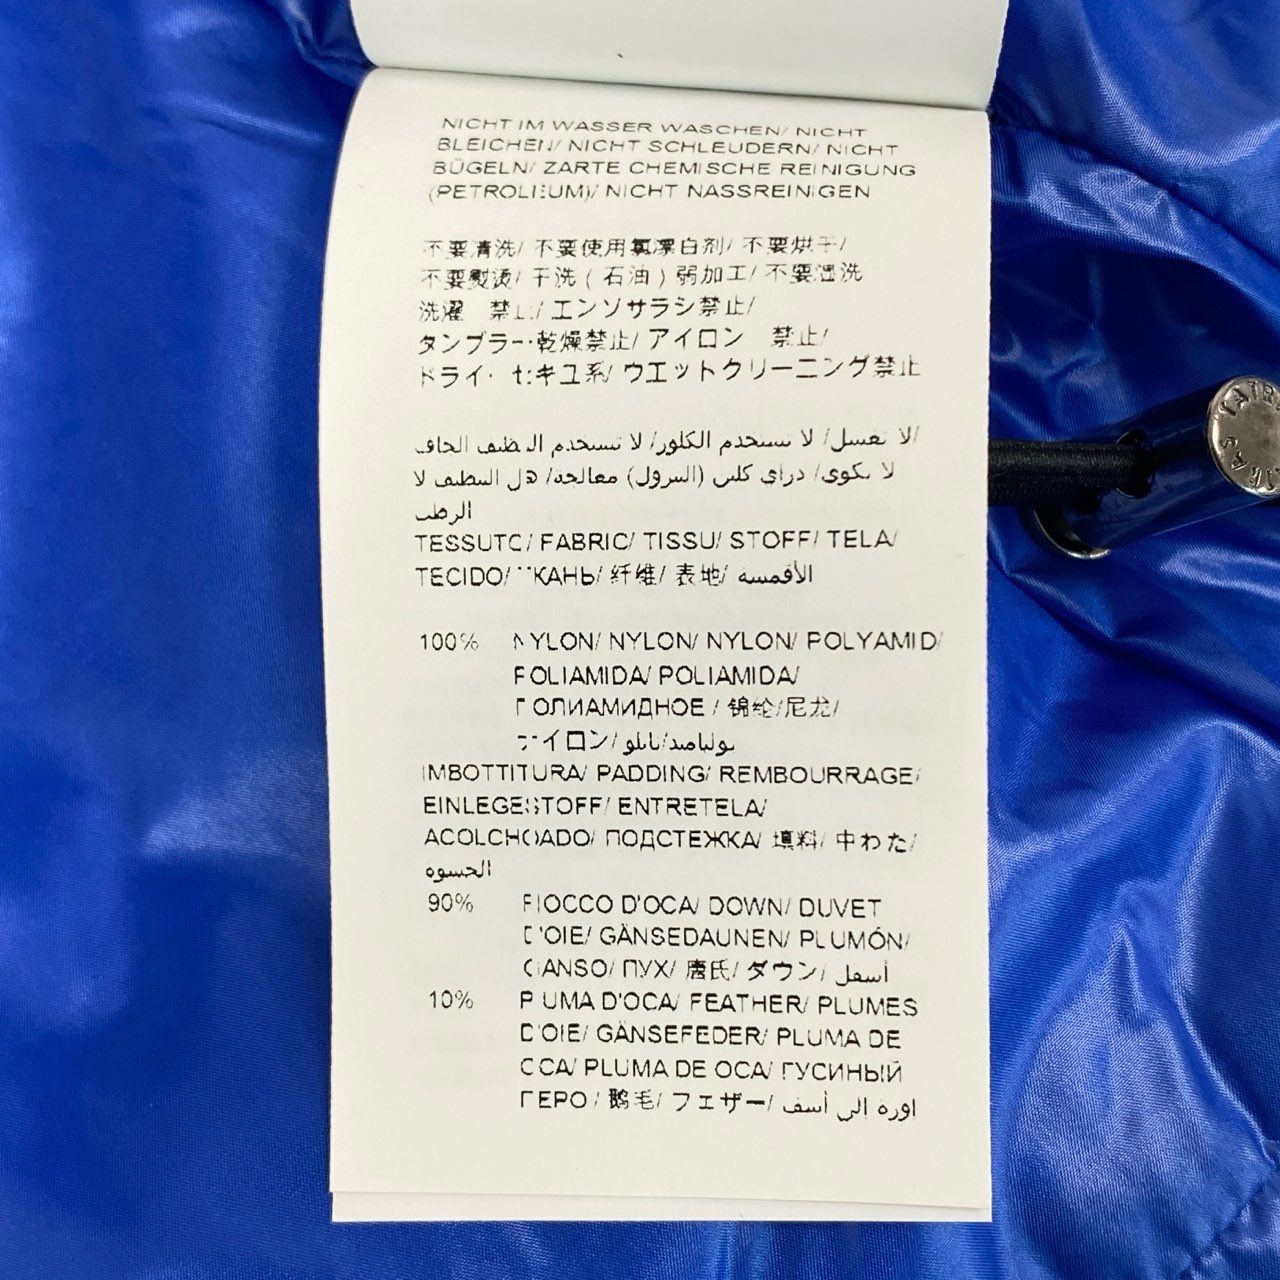 NICHT IM WASSER WASCHEN/ NICHT
BLEICHEN/ NICHT SCHLEUDERN/ NICHT
BÜGELN/ ZARTE CHEMISCHE REINIGUNG
(PETROLIEUM)/ NICHT NASSREINIGEN
不要清洗/ 不要使用氯漂白剂/ 不要烘干/
不要熨烫/ 干洗 ( 石油 ) 弱加工/ 不要湿洗
洗濯 禁止/ エンソサラシ禁止/
タンブラー乾燥禁止/ アイロン 禁止/
ドライ・セキユ系/ ウエットクリーニング禁止
لا تغسل/ لا تستخدم الكلور/ لا تستخدم التنظيف الجاف/
لا تكوى/ دراي كلين (البترول) معالجة/ هل التنظيف لا
الرطب
TESSUTO/ FABRIC/ TISSU/ STOFF/ TELA/
TECIDO/ ТКАНЬ/ 纤维/ 表地/ الأقمشة
100% NYLON/ NYLON/ NYLON/ POLYAMID/
POLIAMIDA/ POLIAMIDA/
ПОЛИАМИДНОЕ / 锦纶/尼龙/
ナイロン/ بولياميد/نايلو
IMBOTTITURA/ PADDING/ REMBOURRAGE/
EINLEGESTOFF/ ENTRETELA/
ACOLCHOADO/ ПОДСТЕЖКА/ 填料/ 中わた/
الحشوه
90% FIOCCO D'OCA/ DOWN/ DUVET
D'OIE/ GÄNSEDAUNEN/ PLUMÓN/
GANSO/ ПУХ/ 唐氏/ ダウン/ أسفل
10% PIUMA D'OCA/ FEATHER/ PLUMES
D'OIE/ GÄNSEFEDER/ PLUMA DE
OCA/ PLUMA DE OCA/ ГУСИНЫЙ
ПЕРО / 鹅毛/ フェザー/ اوزة إلى أسف
TATRAS